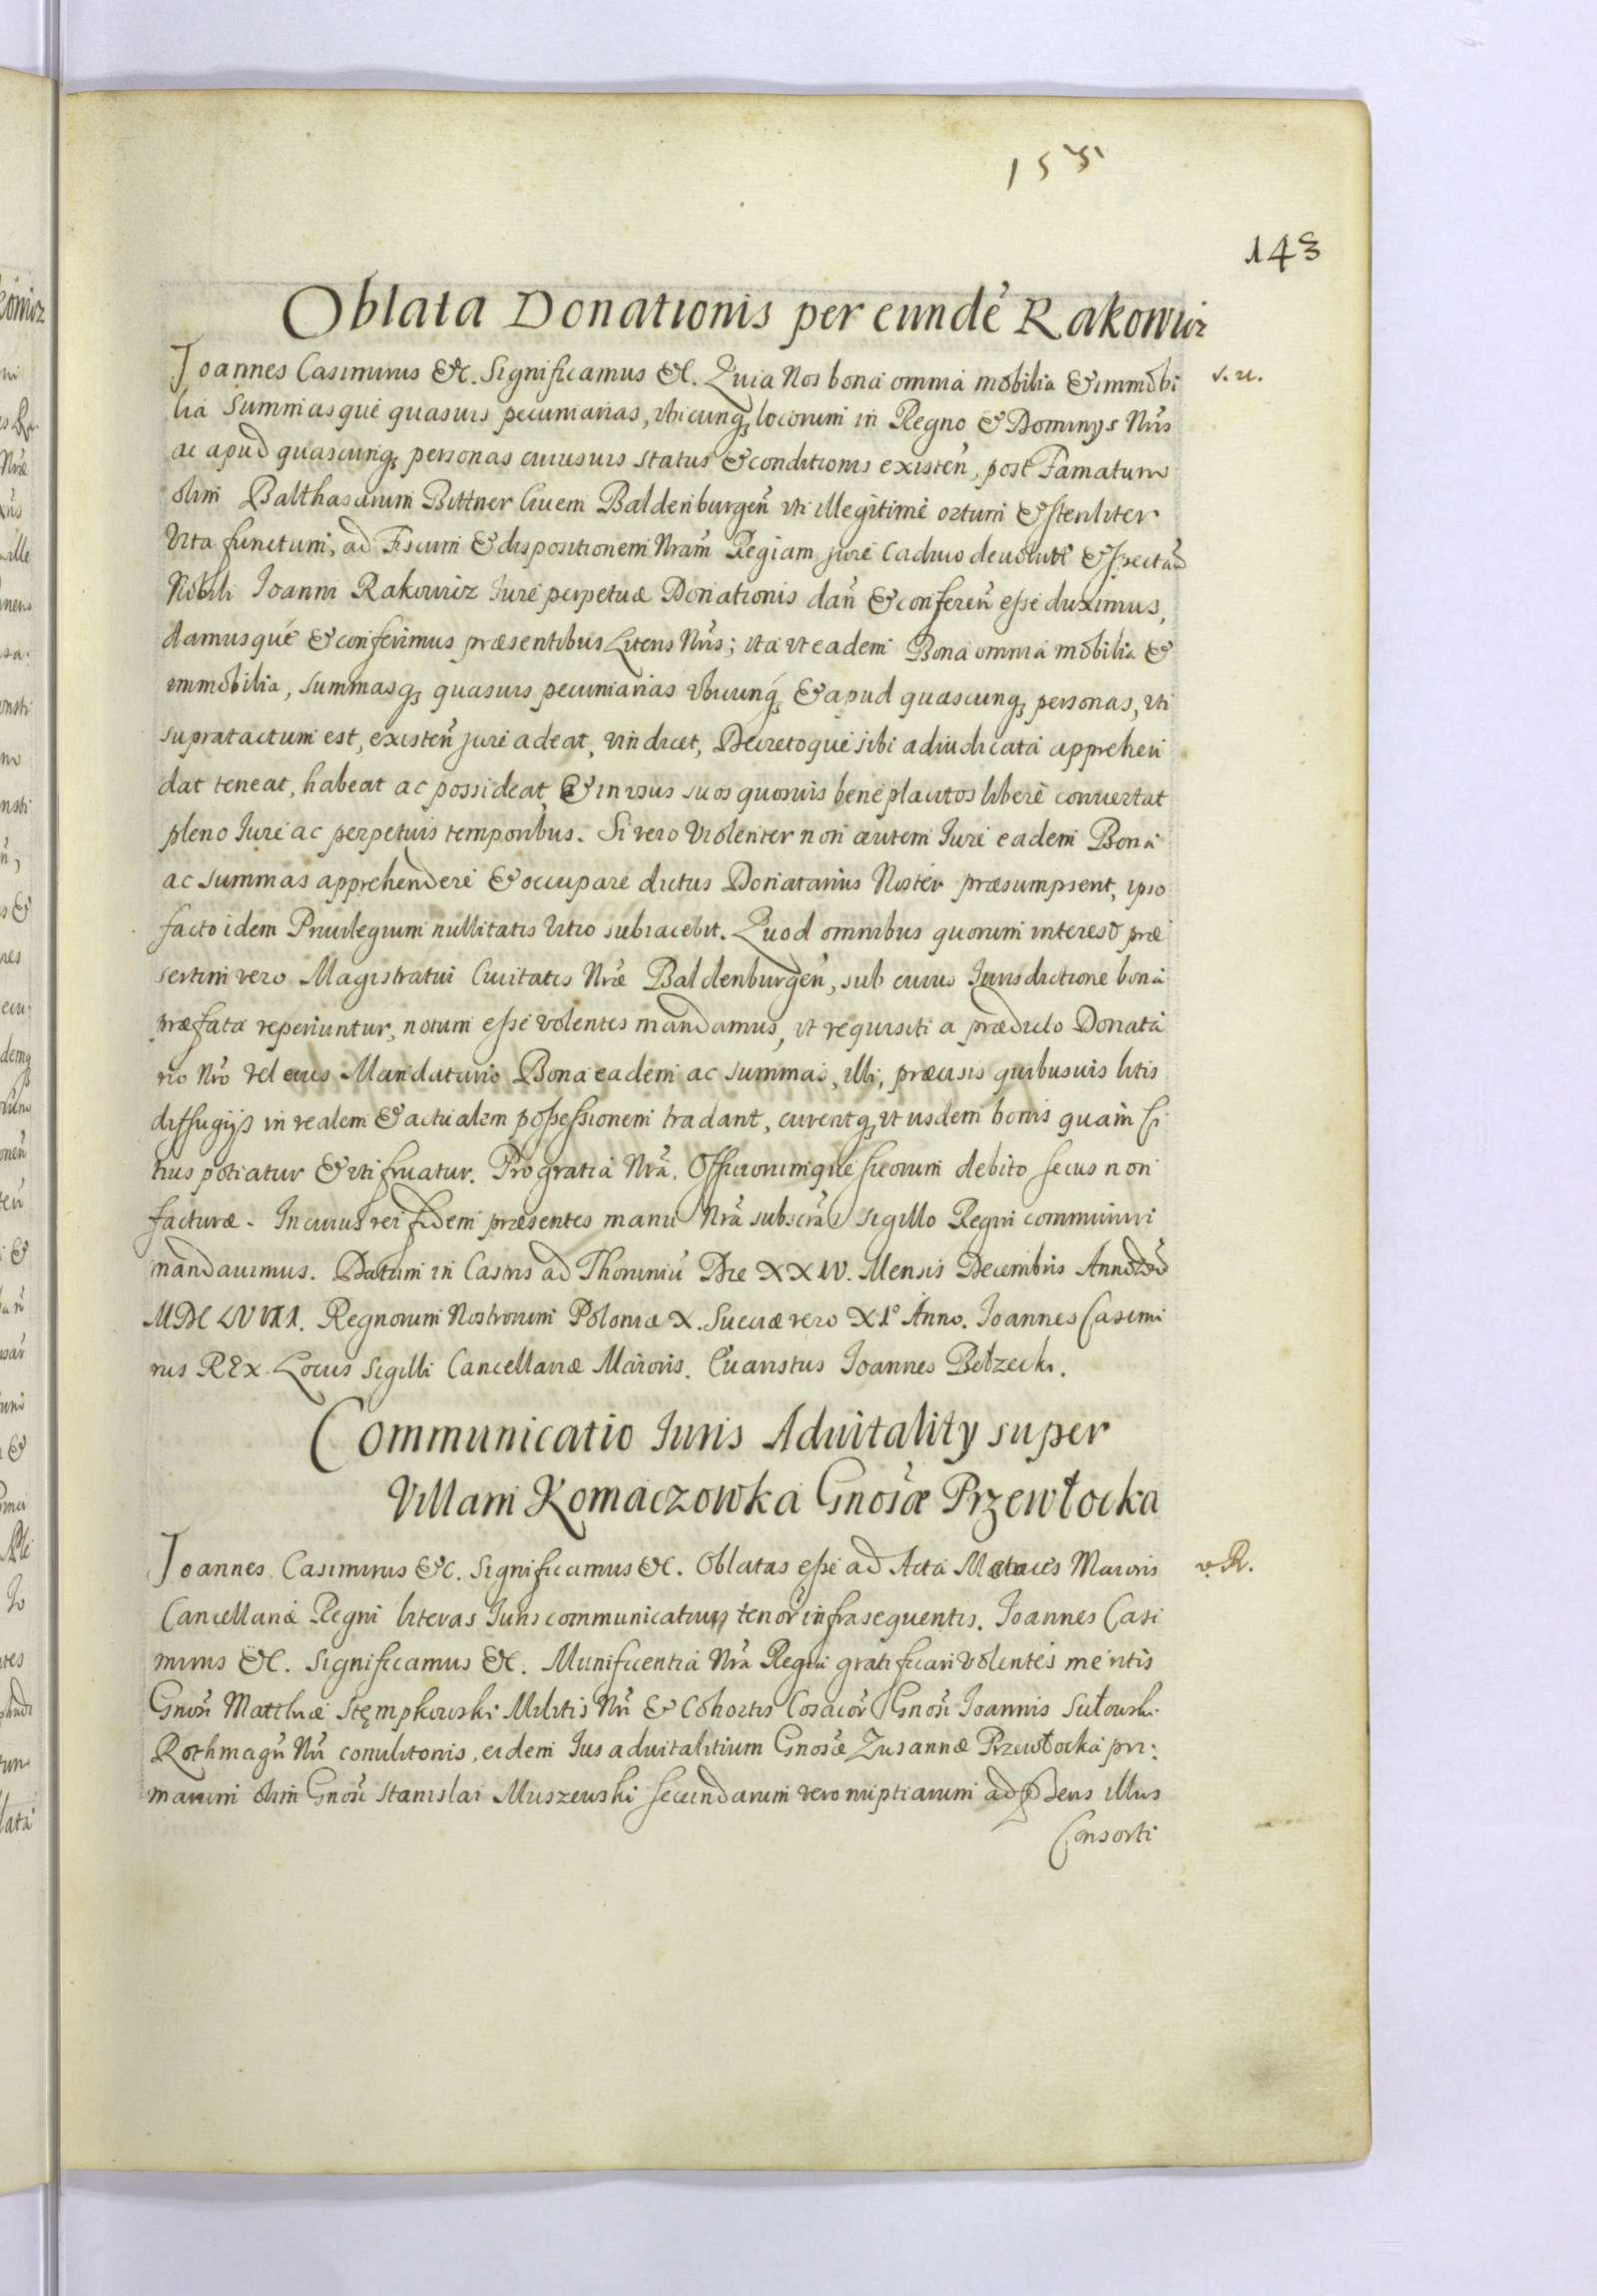 155
143
Oblata Donationis per eundē Rakowicz
Joannes Casimirus &c. Significamus &c. Quia Nos bona omnia mobilia & immobi
v. u.
lia Summasque quasuis pecuniarias, vbicunq3 locorum in Regno & Dominys Nris
ac apud quascunq3 personas cuiusuis status & conditionis existen̄, post Famatum
olim Balthasarum Bittner Ciuem Baldenburgen̄ vti illegitime ortum & steriliter
Vita functum, ad Fiscum & dispositionem Nram̄ Regiam jure caduco deuoluti & spectan̄
Nobili Ioanni Rakowicz Iure perpetuæ Donationis dan̄ & conferen̄ esse duximus,
damusque & conferimus præsentibus Literis Nris; ita vt eadem Bona omnia mobilia &
immobilia, summasq3 quasuis pecuniarias vbicunq3 & apud quascunq3 personas, vti
supratactum est, existen̄ jure adeat, vindicet, Decretoque sibi adiudicata apprehen
dat teneat, habeat ac possideat & in vsus suos quosuis beneplacitos libere conuertat
pleno Iure ac perpetuis temporibus. Si vero violenter non autem Iure eadem Bona
ac summas apprehendere & occupare dictus Donatarius Noster præsumpserit, ipso
facto idem Priuilegium nullitatis vitio subiacebit. Quod omnibus quorum interest præ
sertim vero Magistratui Ciuitatis Nræ Baldenburgen̄, sub cuius Iurisdictione bona
præfata reperiuntur, notum esse volentes mandamus, vt requisiti a prædicto Donata
rio Nro vel eius Mandatario Bona eadem ac summas, illi, præcisis quibusuis litis
diffugijs in realem & actualem possessionem tradant, curentq3 vt ijsdem bonis quam ci
tius potiatur & vti fruatur. Pro gratia Nra. Officiorumque suorum debito secus non
facturæ. In cuius rei fidem præsentes manu Nra subscras sigillo Regni communiri
mandauimus. Datum in Castris ad Thoruniū Die XXIV. Mensis Decembris Anno Dnī
MDCLVIII. Regnorum Nostrorum Poloniæ X. Sueciæ vero XI° Anno. Ioannes Casimi
rus REX. Locus Sigilli Cancellariæ Maioris. Euaristus Ioannes Bełzecki.
Communicatio Iuris Aduitality super
Villam Komaczowka Gnosæ Przewłocka
Joannes Casimirus &c. Significamus &c. Oblatas esse ad Acta Metrices Maioris
v. R.
Cancellariæ Regni literas Iuris communicatiuas tenoris infrasequentis. Joannes Casi
mirus &c. Significamus &c. Munificentia Nra Regia gratificari volentes meritis
Gnosi Matthiæ Stęmpkowski Militis Nri & Cohortis Cosacor̄ Gnosi Ioannis Sułowski
Rothmagri Nri conulitonis, eidem Ius aduitalitium Gnosæ Zusannæ Przewłocka pri:
marum olim Gnosi Stanislai Muszewski secundarum vero nuptiarum ad præsens illius
Consorti